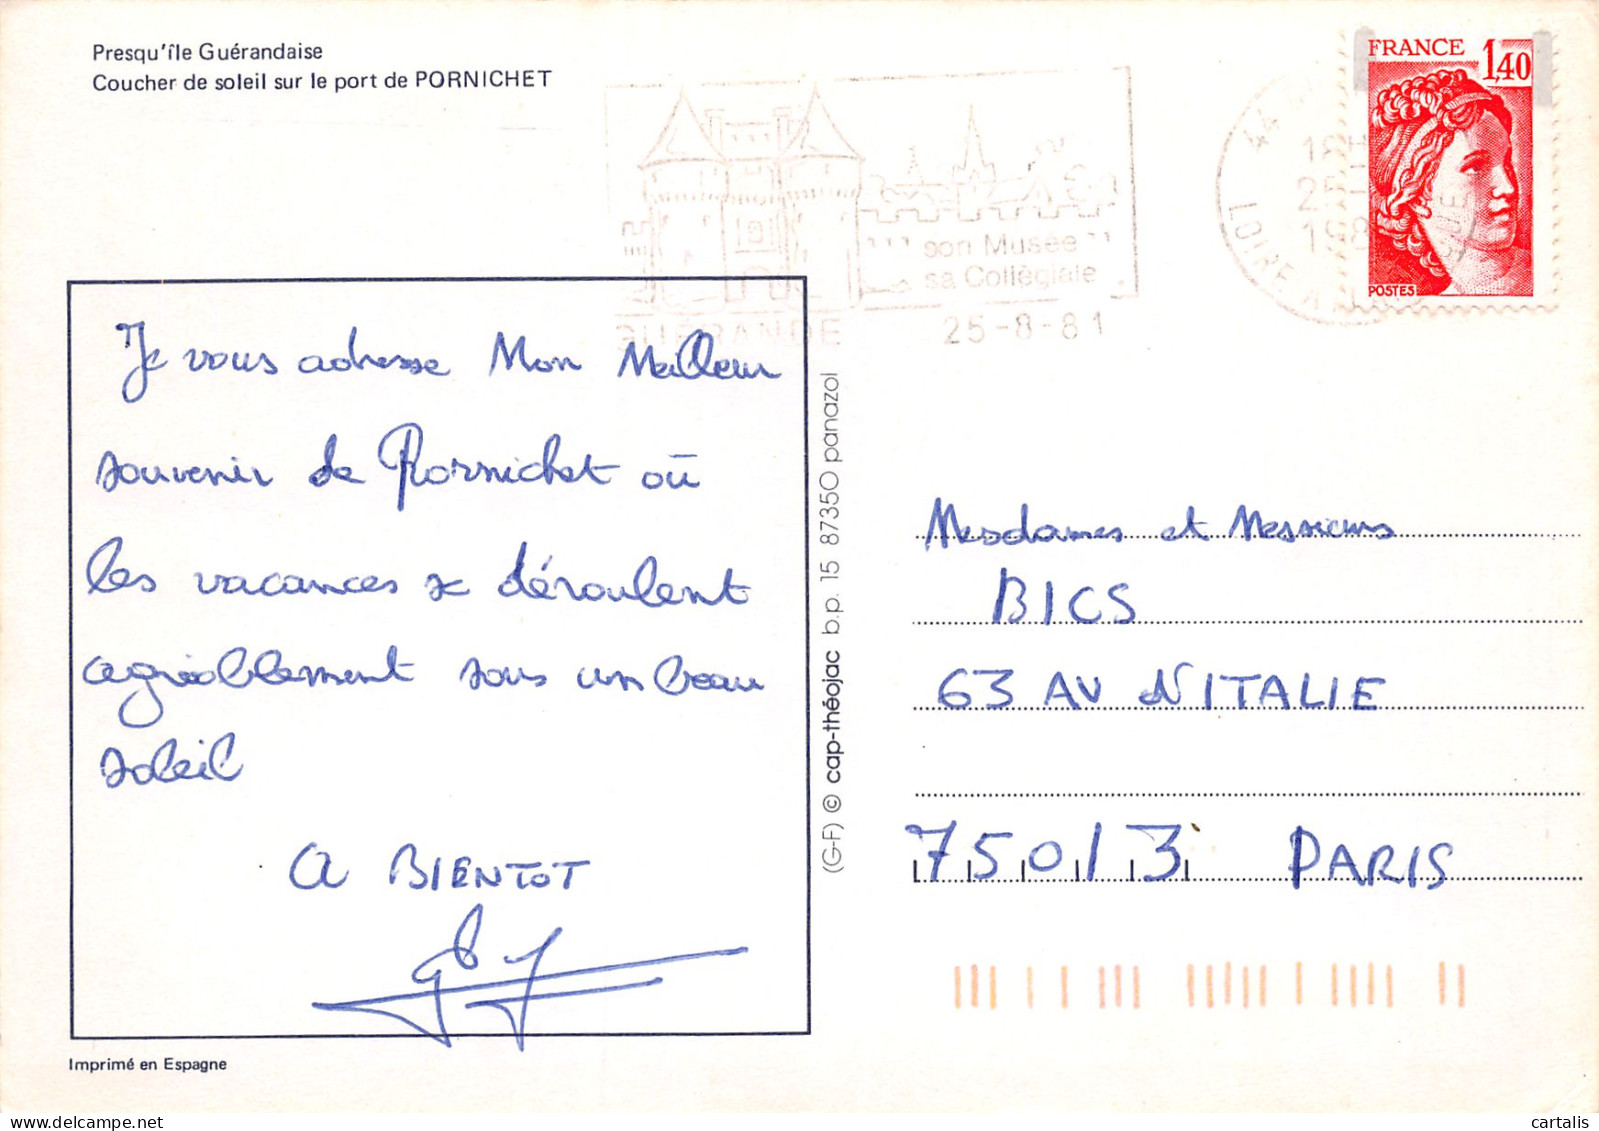 Presqu'île Guérandaise
Coucher de soleil sur le port de PORNICHET
FRANCE
1,40
POSTES
son Musée
sa Collégiale
GUÉRANDE 25-8-81
44
18H
25
198
LOIRE A
Je vous adresse Mon Meilleur
souvenir de Pornichet où
les vacances se déroulent
agréablement sous un beau
soleil
A BIENTOT
(G-F) © cap-théojac b.p. 15 87350 panazol
Mesdames et Messieurs
BICS
63 AV D'ITALIE
75013 PARIS
Imprimé en Espagne
cartalis